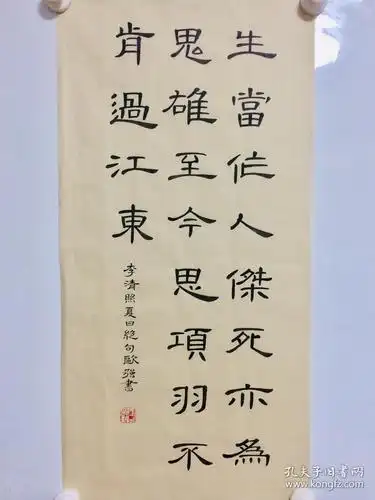 生當作人傑死亦為
鬼雄至今思項羽不
肯過江東
李清照夏日絕句歐強書
孔夫子旧书网
www.kongfz.com